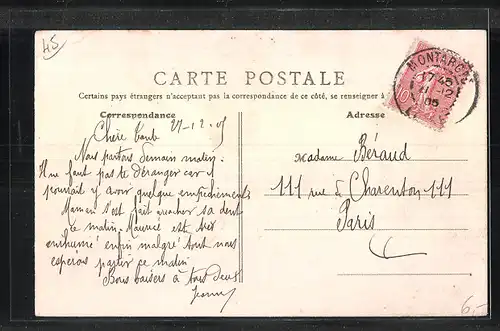 45
CARTE POSTALE
Certains pays étrangers n'acceptant pas la correspondance de ce côté, se renseigner à
Correspondance
Adresse
MONTARGIS
17 45
12
05
27-12-05
Chère tante
Nous partons demain matin.
Il ne faut pas te déranger car il
pourrait y avoir quelque empêchements
Maman s'est fait arracher sa dent
ce matin. Maurice est très
enrhumé enfin malgré tout nous
esperons partir ce matin
Bons baisers à tous deux
Jeanne
Madame Béraud
111 rue de Charenton 111
Paris
6,-